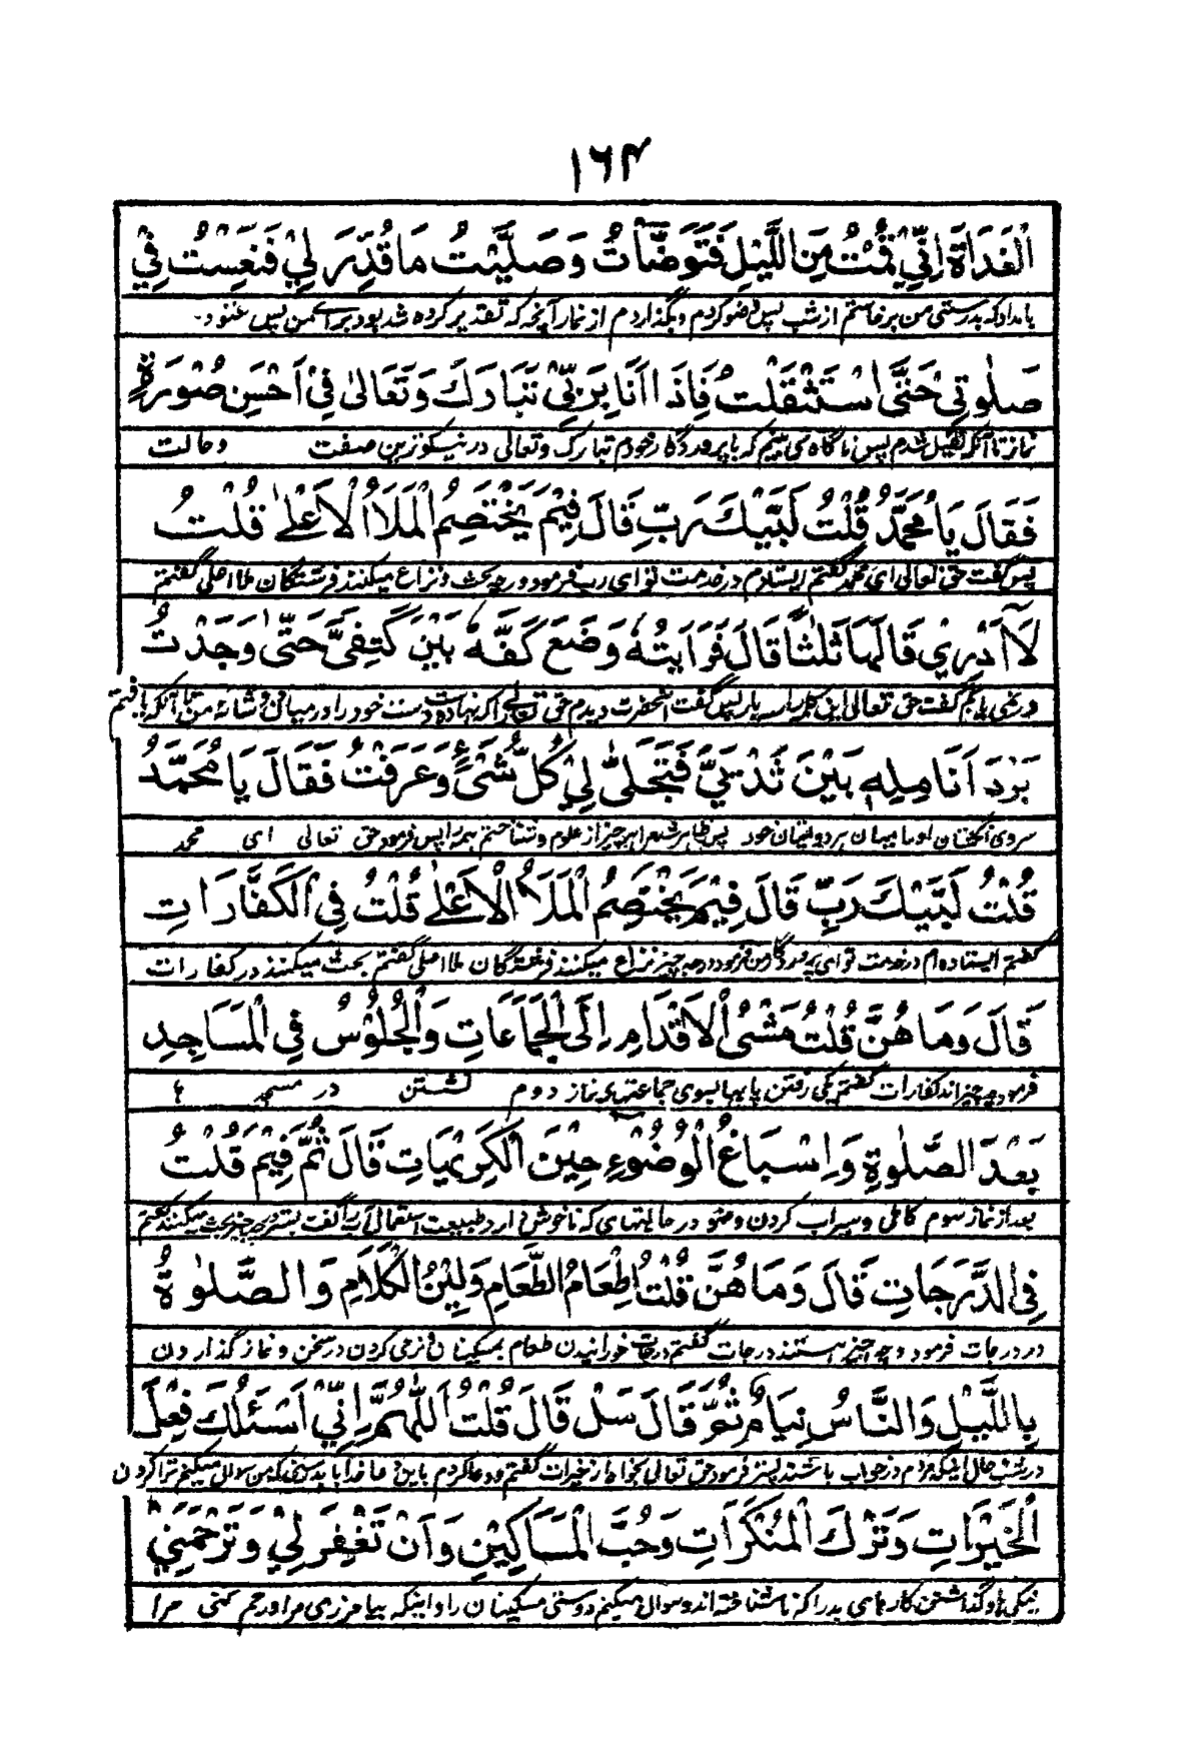 ۱۶۴
الْغَدَاةَ اِنِّيْ قُمْتُ مِنَ اللَّيْلِ فَتَوَضَّأْتُ وَصَلَّيْتُ مَا قُدِّرَ لِيْ فَنَعِسْتُ فِيْ
بامداد که بدرستی من برخاستم از شب پس وضو کردم و بگذاردم از نماز آنچه که تقدیر کرده شد بود برای من پس غنود
صَلٰوتِيْ حَتَّى اسْتَثْقَلْتُ فَاِذَا اَنَا بِرَبِّيْ تَبَارَكَ وَتَعَالٰى فِيْ اَحْسَنِ صُوْرَةٍ
نماز تا آنکه ثقیل شدم پس ناگاه می بینم که با پروردگار خودم تبارک و تعالی در نیکوترین صفت و حالت
فَقَالَ يَا مُحَمَّدُ قُلْتُ لَبَّيْكَ رَبِّ قَالَ فِيْمَ يَخْتَصِمُ الْمَلَأُ الْاَعْلٰى قُلْتُ
پس گفت حق تعالی ای محمد گفتم ایستادم در خدمت تو ای رب فرمود در چه بحث و نزاع میکنند فرشتگان ملا اعلی گفتم
لَا اَدْرِيْ قَالَهَا ثَلٰثًا قَالَ فَرَاَيْتُهٗ وَضَعَ كَفَّهٗ بَيْنَ كَتِفَيَّ حَتّٰى وَجَدْتُ
گفت حق تعالی این کلمه را سه بار پس گفت آنحضرت دیدم حق تعالی را که نهاد دست خود را در میان دو شانه من تا آنکه یافتم
بَرْدَ اَنَامِلِهٖ بَيْنَ ثَدْيَيَّ فَتَجَلّٰى لِيْ كُلُّ شَيْءٍ وَعَرَفْتُ فَقَالَ يَا مُحَمَّدُ
سردی انگشتان او میان هر دو پستان خود پس ظاهر شد مرا هر چیز از علوم و شناختم همه را پس فرمود حق تعالی ای محمد
قُلْتُ لَبَّيْكَ رَبِّ قَالَ فِيْمَ يَخْتَصِمُ الْمَلَأُ الْاَعْلٰى قُلْتُ فِي الْكَفَّارَاتِ
گفتم ایستاده ام در خدمت تو ای پروردگار من فرمود در چه چیز نزاع میکنند فرشتگان ملا اعلی گفتم بحث میکنند در کفارات
قَالَ وَمَا هُنَّ قُلْتُ مَشْيُ الْاَقْدَامِ اِلَى الْجَمَاعَاتِ وَالْجُلُوْسُ فِي الْمَسَاجِدِ
فرمود چه چیز اند کفارات گفتم یکی رفتن پایها بسوی جماعتهای نماز دوم نشستن در مسجد ها
بَعْدَ الصَّلٰوةِ وَاِسْبَاغُ الْوُضُوْءِ حِيْنَ الْكَرِيْهَاتِ قَالَ ثُمَّ فِيْمَ قُلْتُ
بعد از نماز سوم کامل و سیراب کردن وضو در حالتهای که ناخوش دارد طبیعت استعمال آب را گفت پستر در چه چیز بحث میکنند گفتم
فِي الدَّرَجَاتِ قَالَ وَمَا هُنَّ قُلْتُ اِطْعَامُ الطَّعَامِ وَلِيْنُ الْكَلَامِ وَالصَّلٰوةُ
در درجات فرمود و چه چیز هستند درجات گفتم درجات خورانیدن طعام بمسکینان و نرمی کردن در سخن و نماز گذاردن
بِاللَّيْلِ وَالنَّاسُ نِيَامٌ ثُمَّ قَالَ سَلْ قَالَ قُلْتُ اَللّٰهُمَّ اِنِّيْ اَسْئَلُكَ فِعْلَ
در شب حال اینکه مردم در خواب باشند پستر فرمود حق تعالی بخواه از خیرات گفتم و دعا کردم باین دعا خدایا بدرستی که من سوال میکنم ترا کردن
الْخَيْرَاتِ وَتَرْكَ الْمُنْكَرَاتِ وَحُبَّ الْمَسَاكِيْنِ وَاَنْ تَغْفِرَ لِيْ وَتَرْحَمَنِيْ
نیکی ها و گذاشتن کارهای بد را که ناشناخته اند و سوال میکنم دوستی مسکینان را و اینکه بیامرزی مرا و رحم کنی مرا